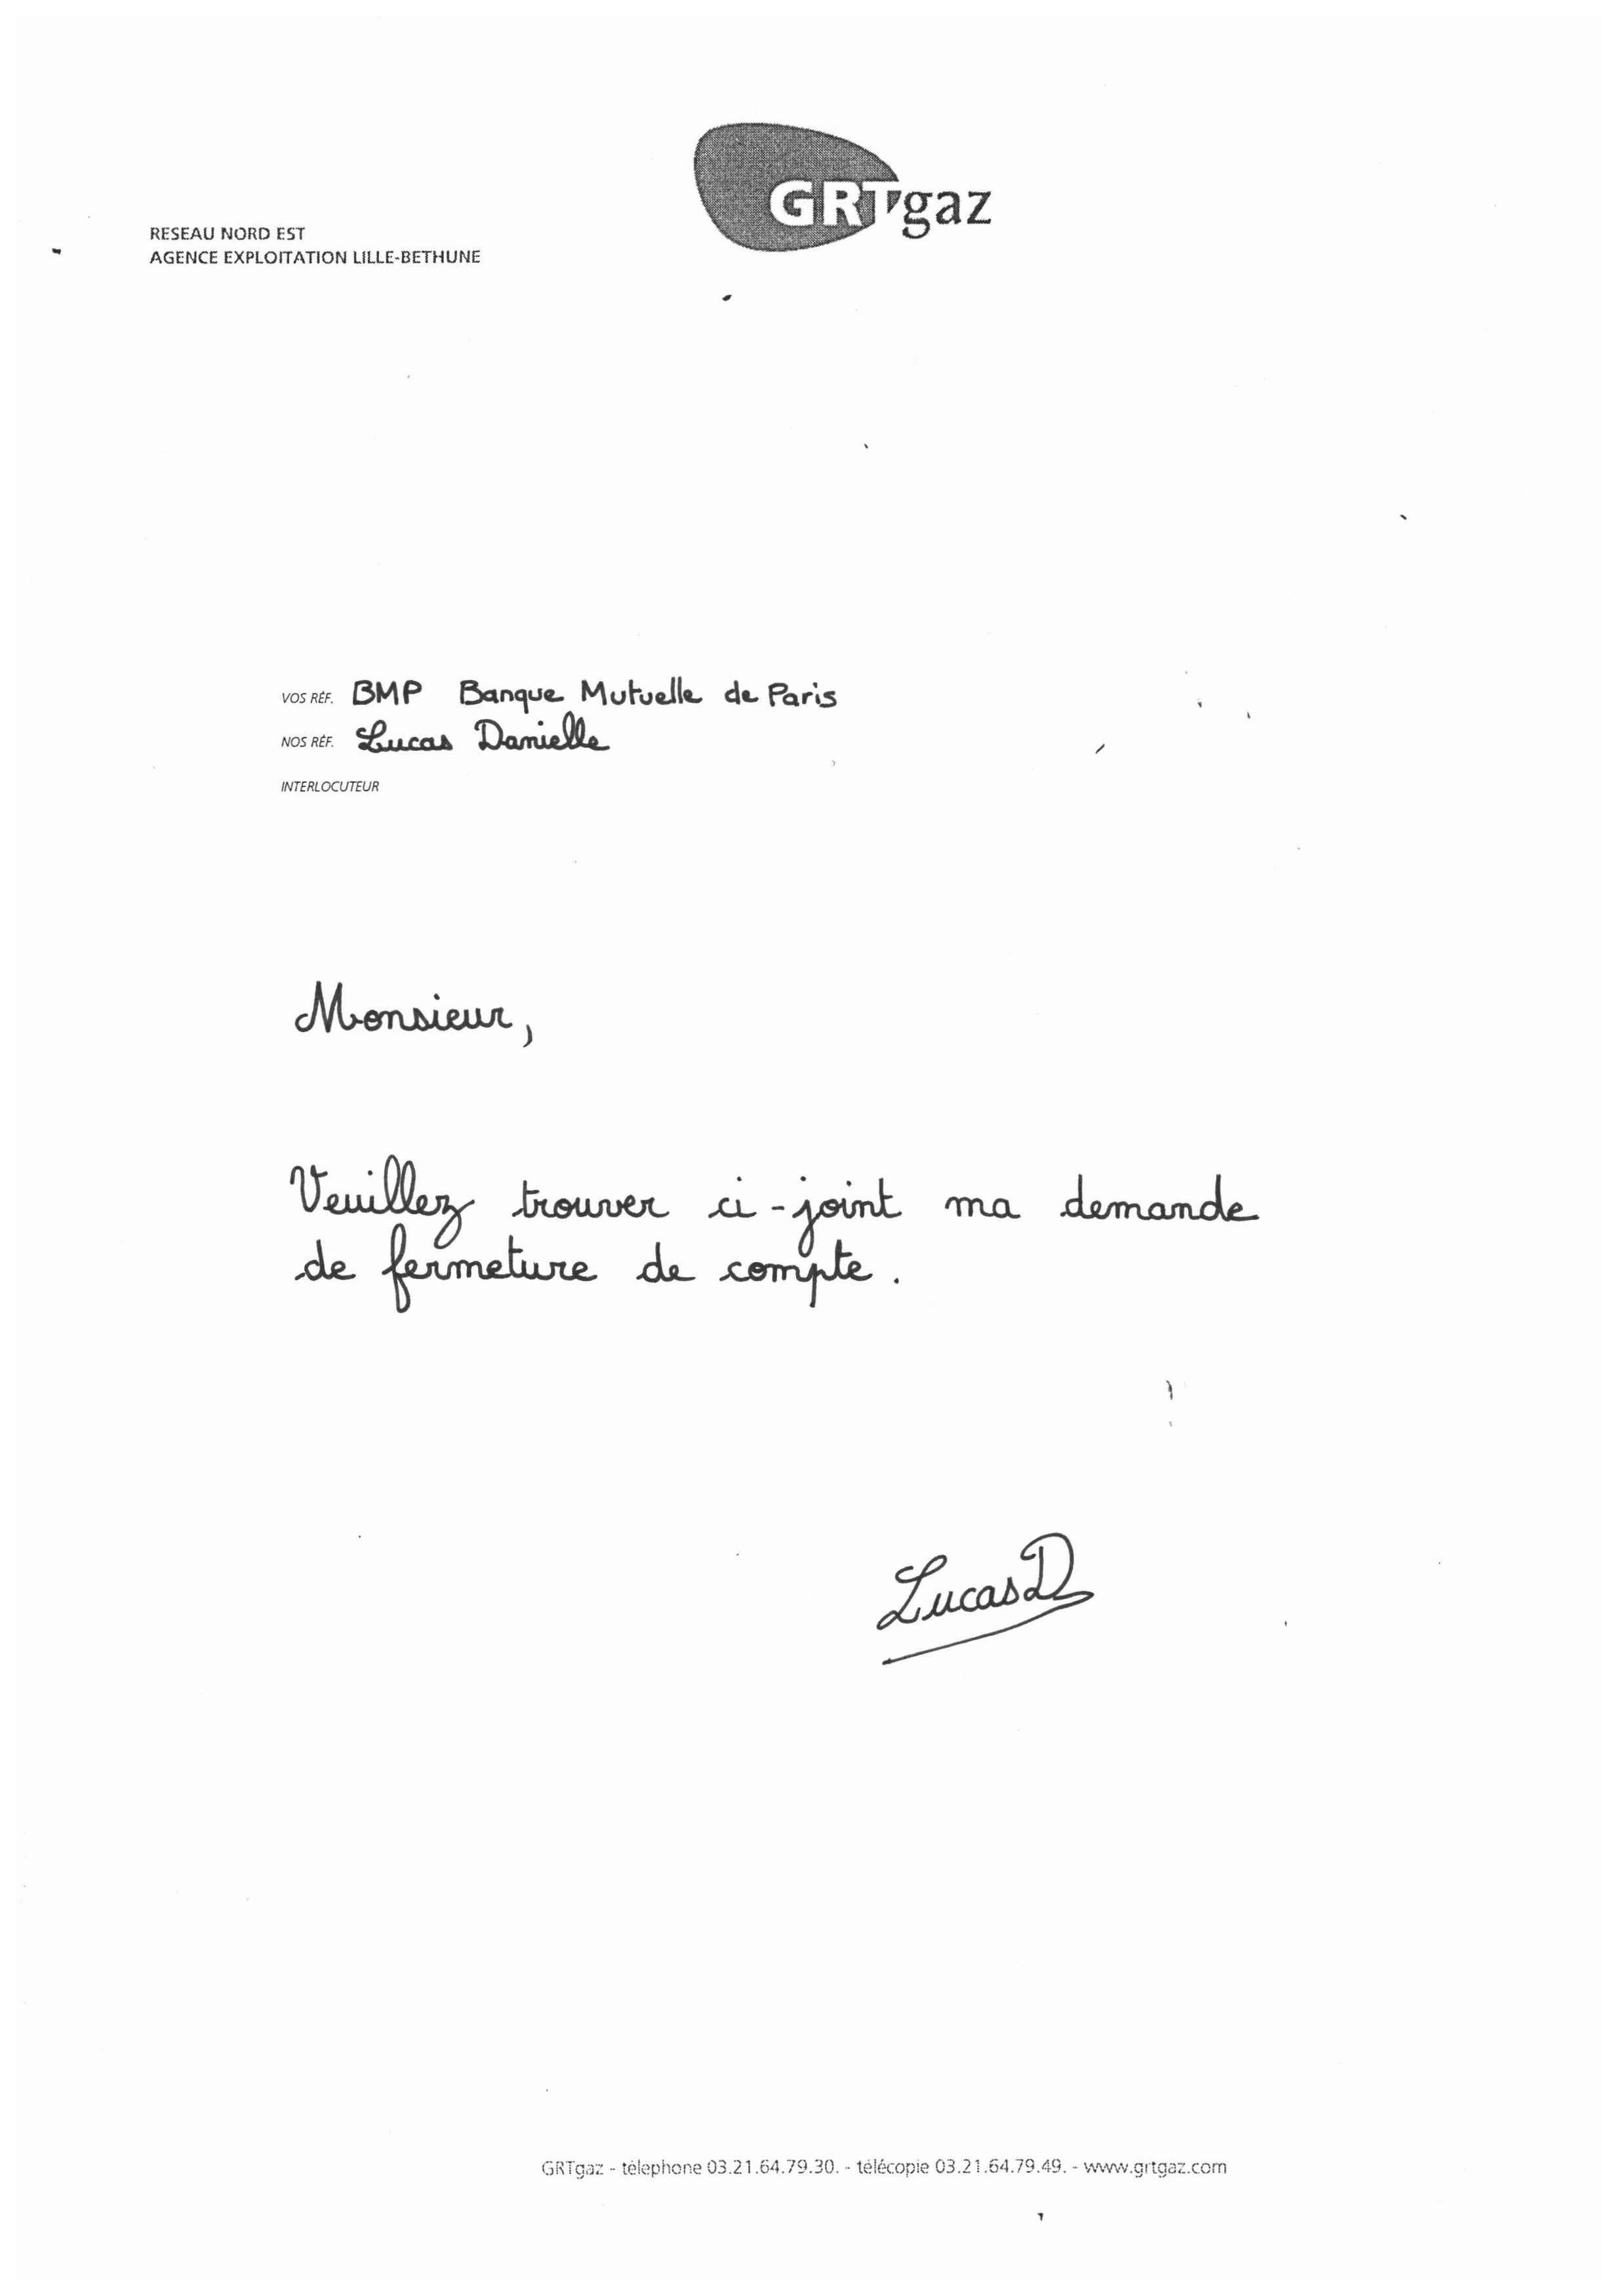 GRTgaz
RESEAU NORD EST
AGENCE EXPLOITATION LILLE-BETHUNE
VOS RÉF. BMP Banque Mutuelle de Paris
NOS RÉF. Lucas Danielle
INTERLOCUTEUR
Monsieur,
Veuillez trouver ci-joint ma demande
de fermeture de compte.
Lucas D
GRTgaz - téléphone 03.21.64.79.30. - télécopie 03.21.64.79.49. - www.grtgaz.com